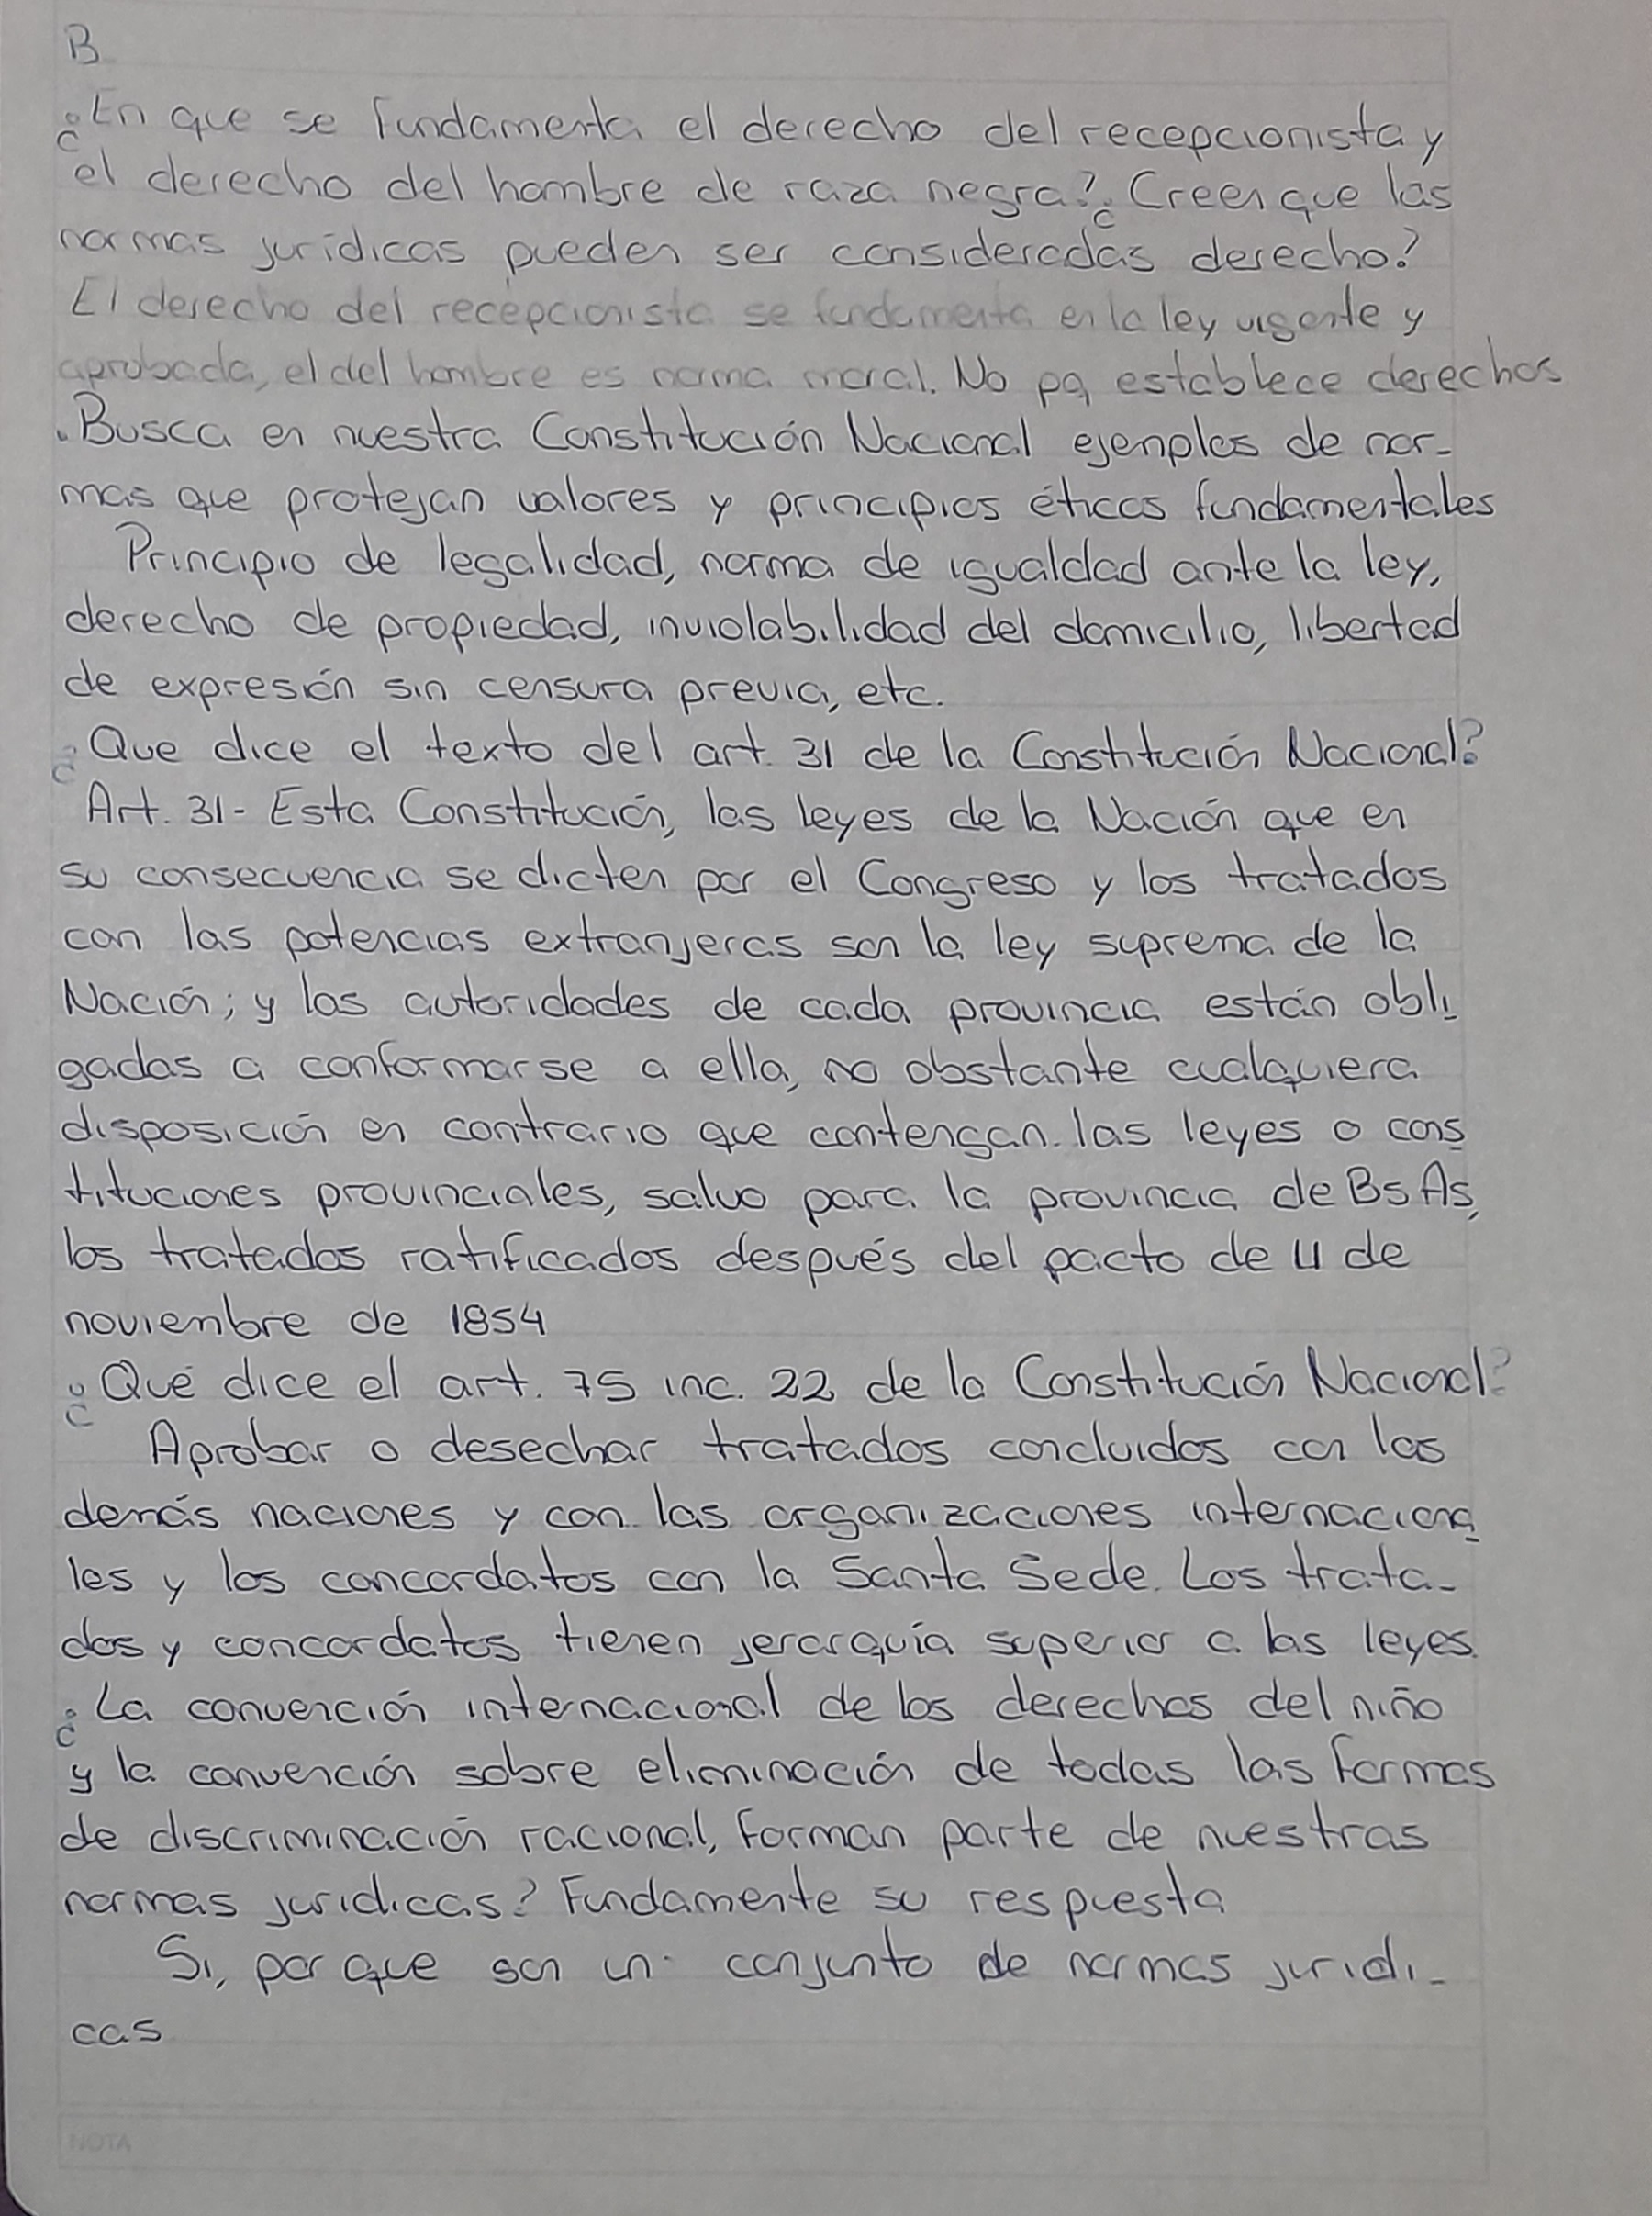 B
¿En que se fundamenta el derecho del recepcionista y
el derecho del hombre de raza negra? ¿Creen que las
normas jurídicas pueden ser consideradas derecho?
El derecho del recepcionista se fundamenta en la ley vigente y
aprobada, el del hombre es norma moral. No pq establece derechos
. Busca en nuestra Constitución Nacional ejemplos de nor-
mas que protejan valores y principios éticos fundamentales
Principio de legalidad, norma de igualdad ante la ley,
derecho de propiedad, inviolabilidad del domicilio, libertad
de expresión sin censura previa, etc.
¿Que dice el texto del art. 31 de la Constitución Nacional?
Art. 31- Esta Constitución, las leyes de la Nación que en
su consecuencia se dicten por el Congreso y los tratados
con las potencias extranjeras son la ley suprema de la
Nación; y las autoridades de cada provincia están obli
gadas a conformarse a ella, no obstante cualquiera
disposición en contrario que contengan las leyes o cons
tituciones provinciales, salvo para la provincia de Bs As,
los tratados ratificados después del pacto de 11 de
noviembre de 1854
¿Qué dice el art. 75 inc. 22 de la Constitución Nacional?
Aprobar o desechar tratados concluidos con las
demás naciones y con las organizaciones internaciona
les y los concordatos con la Santa Sede. Los trata-
dos y concordatos tienen jerarquía superior a las leyes.
¿La convención internacional de los derechos del niño
y la convención sobre eliminación de todas las formas
de discriminación racional, forman parte de nuestras
normas juridicas? Fundamente su respuesta
Si, por que son un conjunto de normas juridi-
cas
NOTA